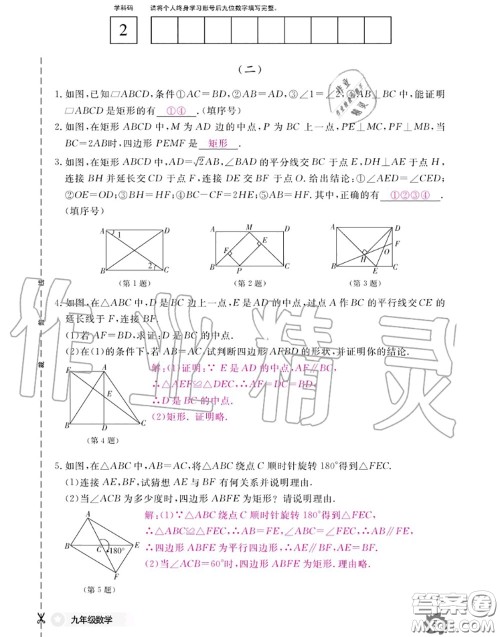 学科码
请将个人终身学习账号后九位数字填写完整。
2
(二)
1. 如图,已知▱ABCD,条件①AC=BD,②AB=AD,③∠1=∠2,④AB⊥BC中,能证明
▱ABCD是矩形的有 ①④ .(填序号)
2. 如图,在矩形ABCD中,M为AD边的中点,P为BC上一点,PE⊥MC,PF⊥MB,当
BC=2AB时,四边形PEMF是 矩形 .
3. 如图,在矩形ABCD中,AD=√2AB,∠BAD的平分线交BC于点E,DH⊥AE于点H,
连接BH并延长交CD于点F,连接DE交BF于点O.给出结论:①∠AED=∠CED;
②OE=OD;③BH=HF;④BC-CF=2HE;⑤AB=HF.其中,正确的有 ①②③④ .
(填序号)
(第1题) (第2题) (第3题)
4. 如图,在△ABC中,D是BC边上一点,E是AD的中点,过点A作BC的平行线交CE的
延长线于F,连接BF.
(1)若AF=BD,求证:D是BC的中点.
(2)在(1)的条件下,若AB=AC,试判断四边形AFBD的形状,并证明你的结论.
解:(1)证明:∵E是AD的中点,AF∥BC,
∴△AEF≌△DEC,∴AF=DC=BD.
∴D是BC的中点.
(2)矩形.证明略.
(第4题)
5. 如图,在△ABC中,AB=AC,将△ABC绕点C顺时针旋转180°得到△FEC.
(1)连接AE,BF,试猜想AE与BF有何关系并说明理由.
(2)当∠ACB为多少度时,四边形ABFE为矩形?请说明理由.
解:(1)∵△ABC绕点C顺时针旋转180°得到△FEC,
∴△ABC≌△FEC,∴AB=FE,∠ABC=∠FEC,∴AB∥FE,
∴四边形ABFE为平行四边形,∴AE∥BF,AE=BF.
(2)当∠ACB=60°时,四边形ABFE为矩形.理由略.
180°
(第5题)
九年级数学
作业精灵